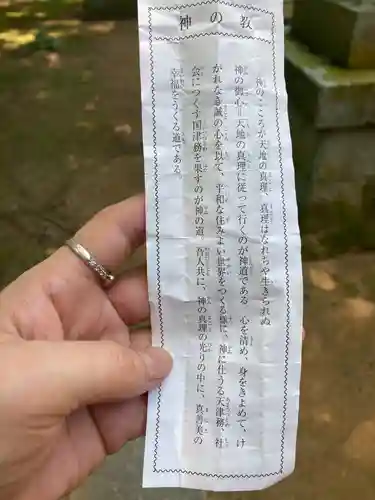 神の教
神のこころが天地の真理、真理はなれちや生きられぬ
神の御心＝天地の真理に従って行くのが神道である　心を清め、身をきよめて、け
がれなき誠の心を以て、平和な住みよい世界をつくる様に、神に仕うる天津務、社
会につくす国津務を果すのが神の道、吾人共に、神の真理の光りの中に、真善美の
幸福をうくる道である。
神の教